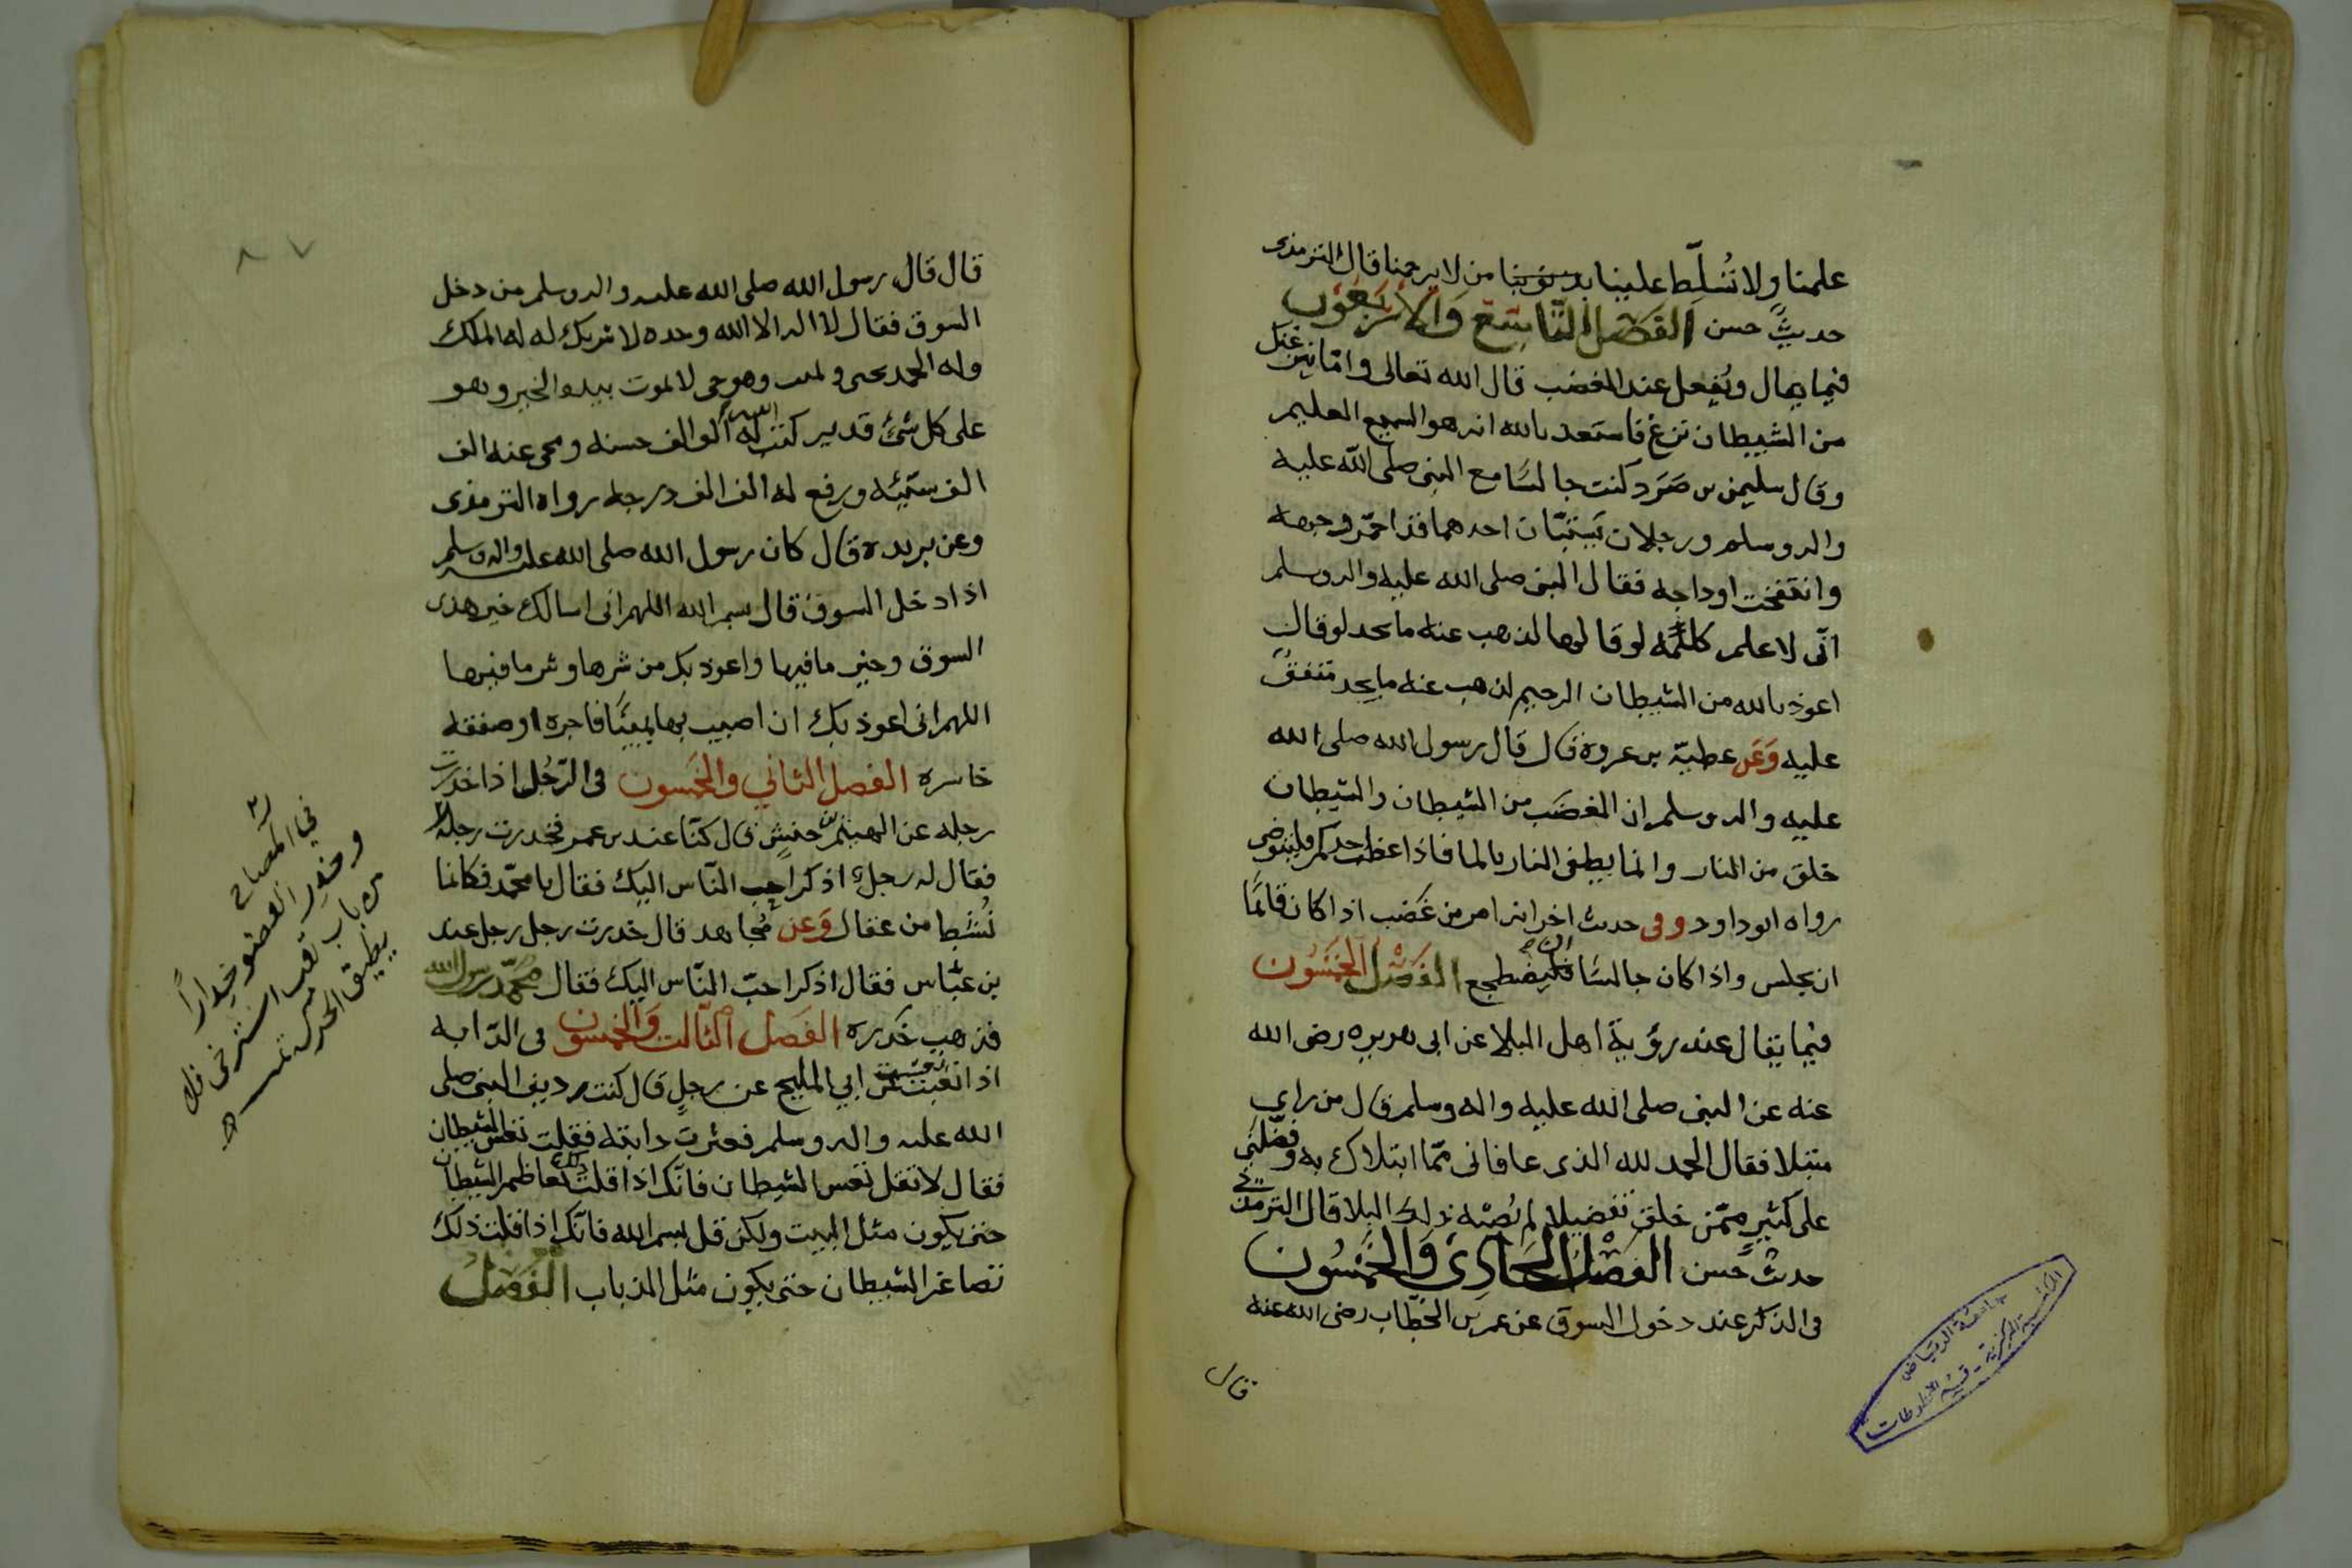 علمنا ولا تُسلِّط علينا بذنوبنا من لا يرحمنا قال الترمذي
حديثٌ حسن الفصل التاسع والاربعون
فيما يقال ويُفعل عند الغضب قال الله تعالى واما ينزغنك
من الشيطان نزغ فاستعذ بالله انه هو السميع العليم
وقال سليمن بن صُرَد كنت جالسًا مع النبي صلى الله عليه
واله وسلم ورجلان يَستبّان احدهما قد احمّر وجهه
وانتفخت اوداجه فقال النبي صلى الله عليه واله وسلم
انّي لاعلم كلمةً لو قالها لذهب عنه ما يجد لو قال
اعوذ بالله من الشيطان الرجيم لذهب عنه ما يجد متفقٌ
عليه وَعَن عطيّة بن عروة قال قال رسول الله صلى الله
عليه واله وسلم ان الغضَب من الشيطان والشيطان
خلق من النار وانما يطفى النار بالما فاذا غضب احدكم فليتوضى
رواه ابو داود وفى حديث اخر انه امر من غَضب اذا كان قائمًا
ان يجلس واذا كان جالسًا فليضطجع الفَصْل الخمسُون
فيما يقال عند رؤية اهل البلا عن ابى هريره رضى الله
عنه عن النبى صلى الله عليه واله وسلم قال من راي
مبتلا فقال الحمد لله الذى عافانى ممّا ابتلاك به وفضّلني
على كثيرٍ ممّن خلق تفضيلا لم يُصبْه ذلك البلا قال الترمذي
حديثٌ حسن الفَصْل الحَادِي وَالخَمْسُون
فى الذكر عند دخول السوق عن عمر بن الخطّاب رضى الله عنه
قال
قال قال رسول الله صلى الله عليه واله وسلم من دخل
السوق فقال لا اله الا الله وحده لا شريك له له الملك
وله الحمد يحيى ويميت وهو حي لا يموت بيده الخير وهو
على كل شئ قدير كتب الله له الف الف حسنه ومحى عنه الف
الف سيّئه ورفع له الف الف درجه رواه الترمذى
وعن بريده قال كان رسول الله صلى الله عليه واله وسلم
اذا دخل السوق قال بسم الله اللهم انى اسالك خير هذى
السوق وخير ما فيها واعوذ بك من شرها وشر ما فيها
اللهم انى اعوذ بك ان اصيب بها يمينًا فاجره او صفقه
خاسره الفصل الثاني والخمسون فى الرّجُل اذا خدرت
رجله عن الهيثم بن حنشٍ قال كنّا عند بن عمر فخدرت رجله
فقال له رجلٌ اذكر احب النّاس اليك فقال يا محمّد فكانما
نُشط من عقال وَعن مُجاهد قال خدرت رجل رجل عند
بن عبّاس فقال اذكر احبّ النّاس اليك فقال محمّد رسول الله
فذهب خَدَره الفَصل الثّالث وَالخمسون فى الدّابه
اذا تعست عن ابي المليح عن رجلٍ قال كنت رديف النبى صلى
الله عليه واله وسلم فعثرت دابته فقلت تعس الشيطان
فقال لا تقل تعس الشيطان فانّك اذا قلت ذلك تعاظم الشيطان
حتى يكون مثل البيت ولكن قل بسم الله فانّك اذا قلت ذلك
تصاغر الشيطان حتى يكون مثل الذباب الفَصْلُ
في المصباح
وخدر العضو خدرًا
من باب تعب استرخى فلا
يطيق الحركة
٨٧
جامعة الرياض
المكتبة المركزية - قسم المخطوطات